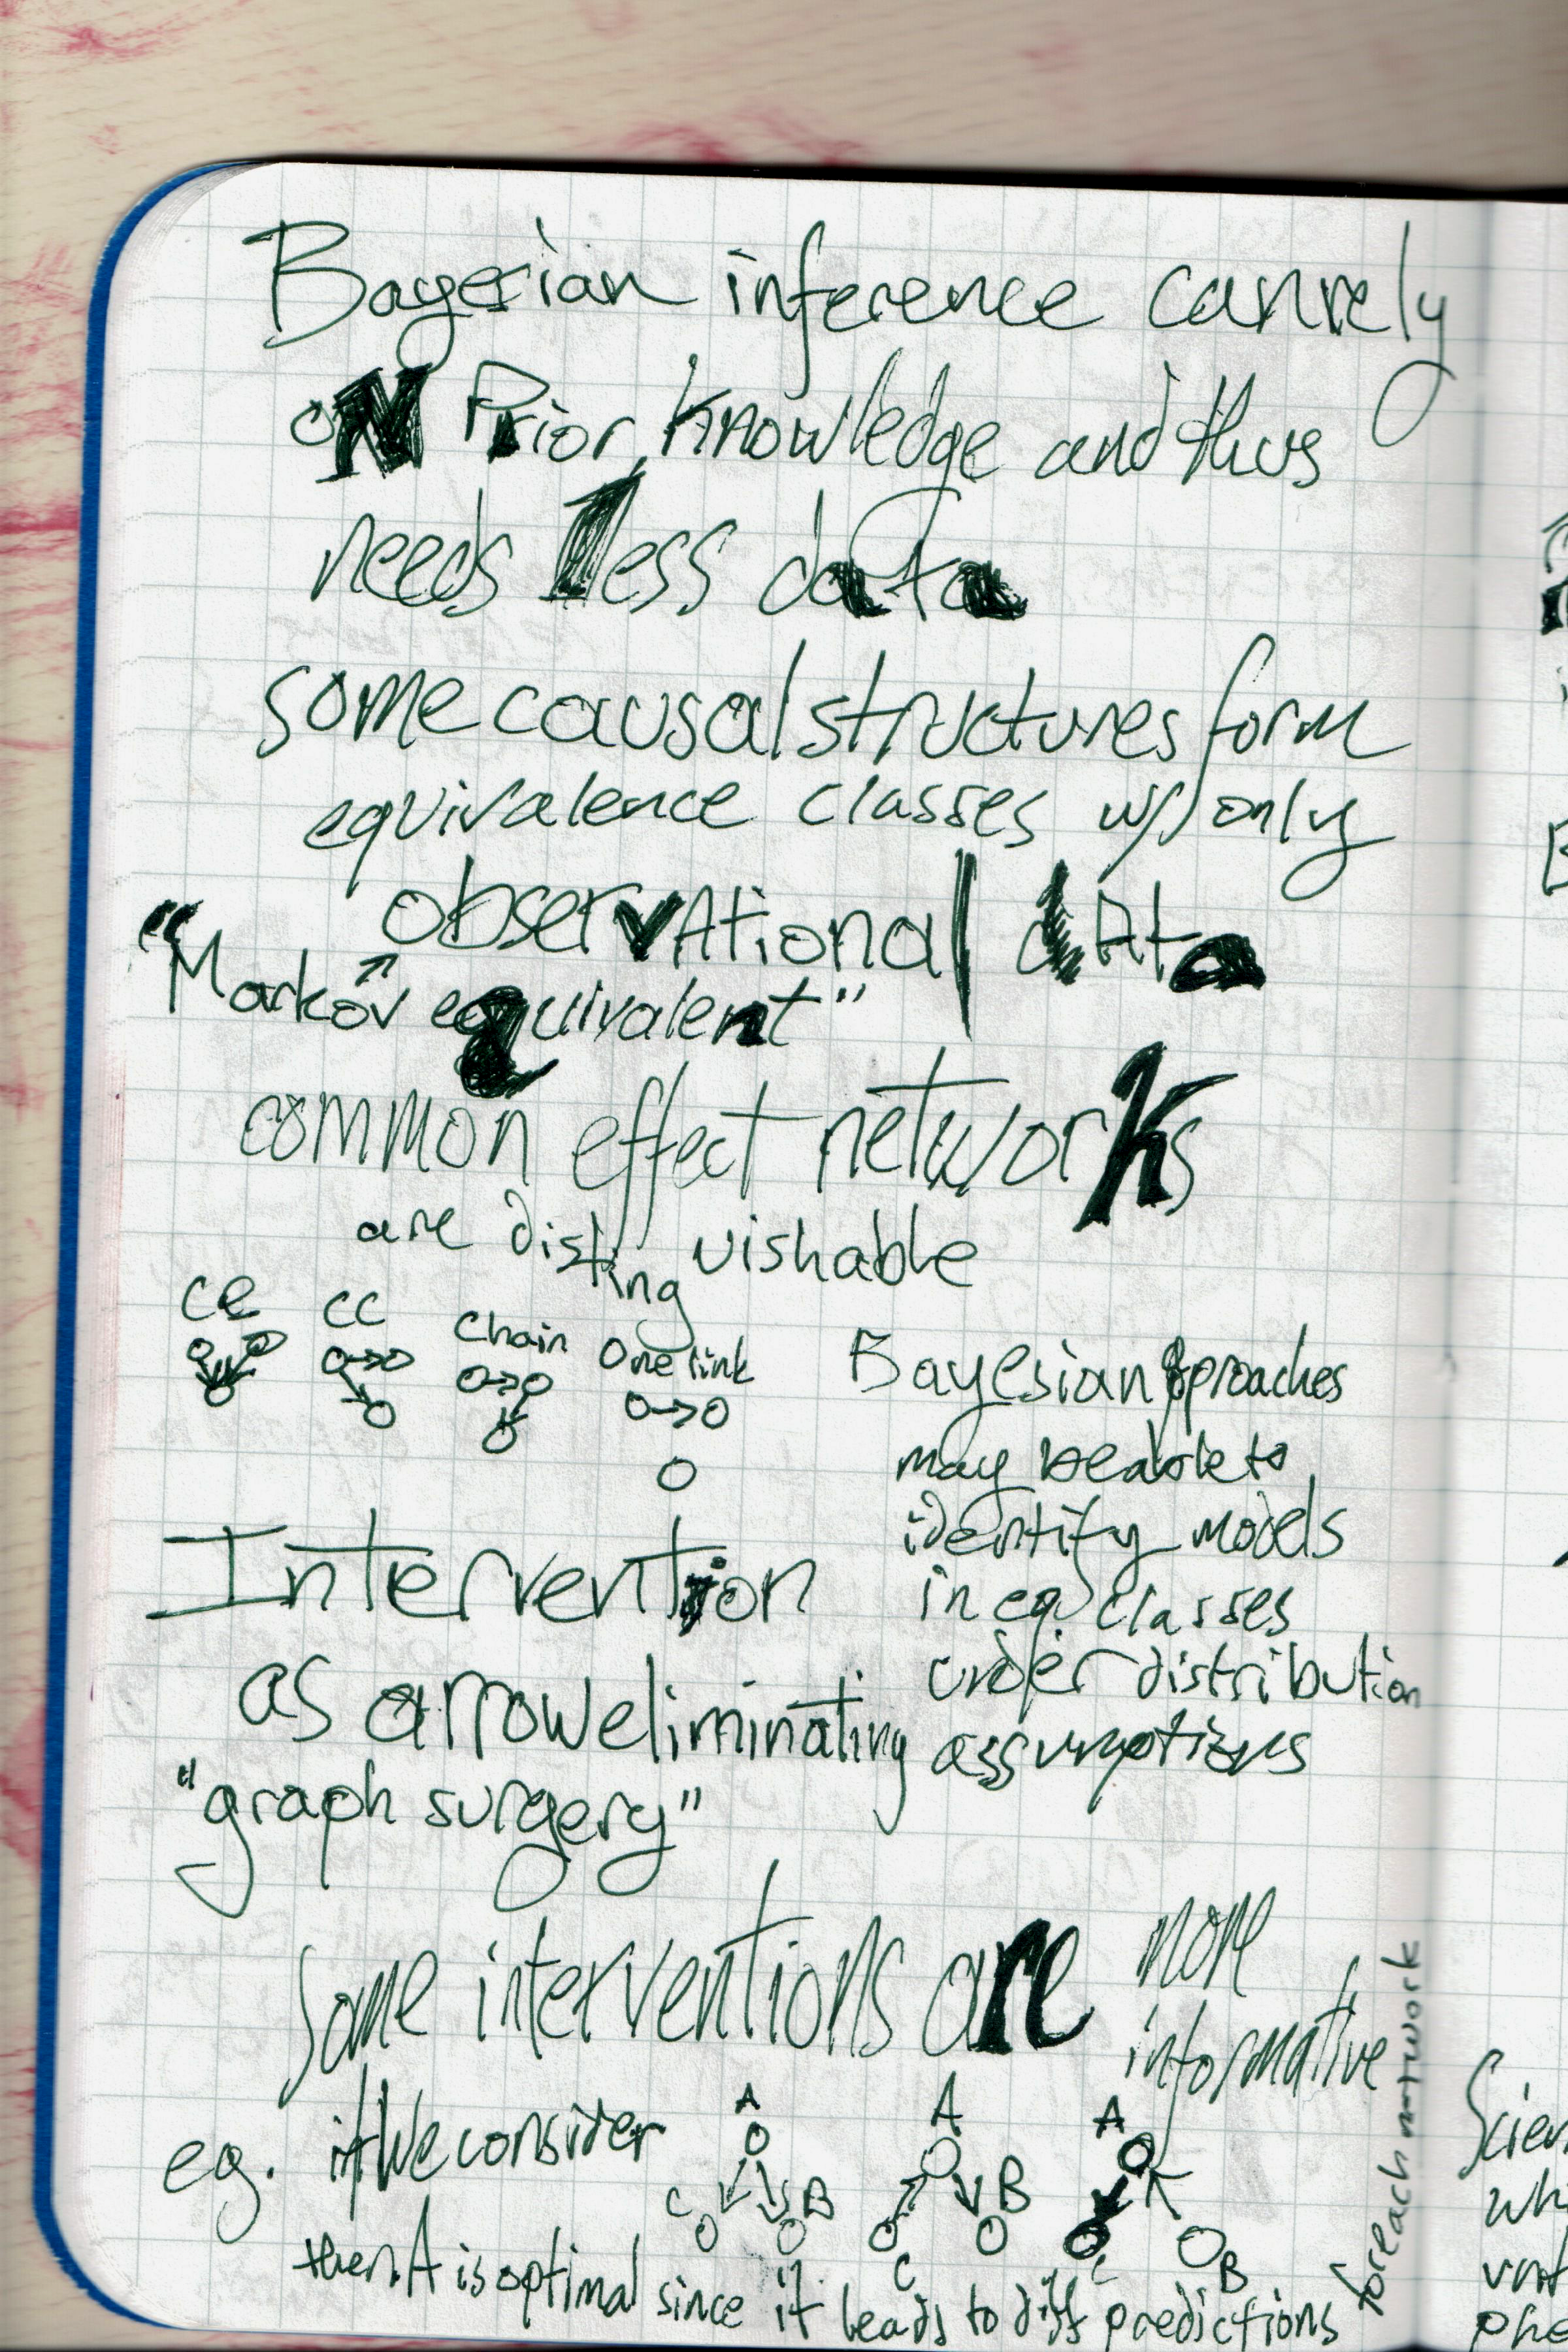 Bayesian inference can rely
oN Prior knowledge and thus
needs less data
some causal structures form
equivalence classes w/ only
observAtional dAta
"Markov equivalent"
common effect networks
are disting uishable
CE CC Chain One link
Bayesian approaches
may be able to
identify models
in eq classes
under distribution
assumptions
Intervention
as arrow eliminating
"graph surgery"
some interventions are more
informative
eg. if we consider
A
C B
A
B
C
A
C
B
then A is optimal since it leads to diff predictions
for each network
Scien
wh